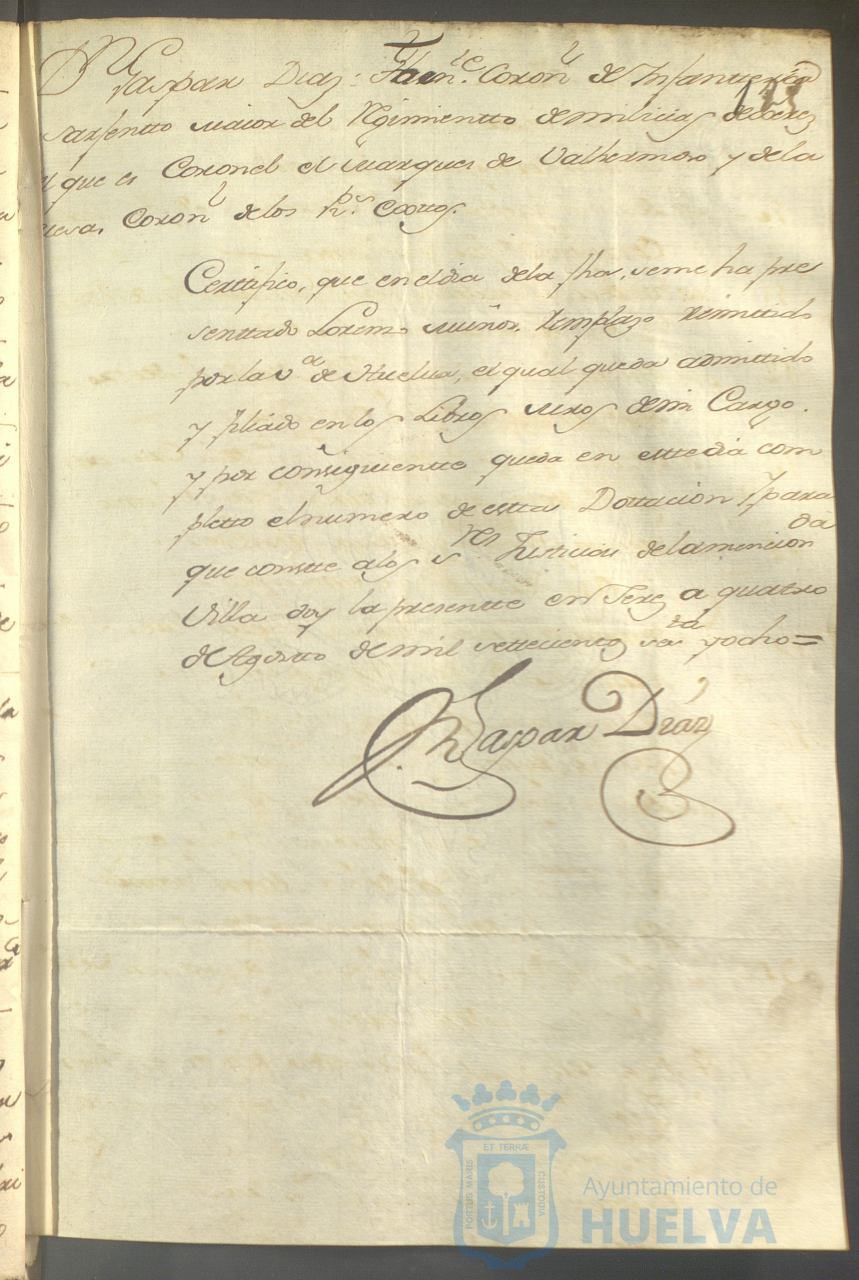 Dn Gaspar Diaz, Thente Coronl de Infanteria
Sargentto maior del Rgimientto de milicias de Xerez
que es Coronel el Marques de Valhermoso y de la
Coronl de los Rs
Certifico, que en el dia de la fha, se me ha pre
senttado Lorenzo Muños, Remplazo Remittido
por la Va de Huelva, el qual queda admittido
y fliado en los Libros mros de mi Cargo.
y por consiguientte queda en estte dia com
pletto el numero de estta Dottacion, y para
que constte a los Sres Justicias de la mencionda
Villa doy la presentte en Xerez a quatro
de Agostto de mil settecientos sesta y ocho=
Dn Gaspar Diaz
ET TERRÆ
PORTUS MARIS
CUSTODIA
Ayuntamiento de
HUELVA